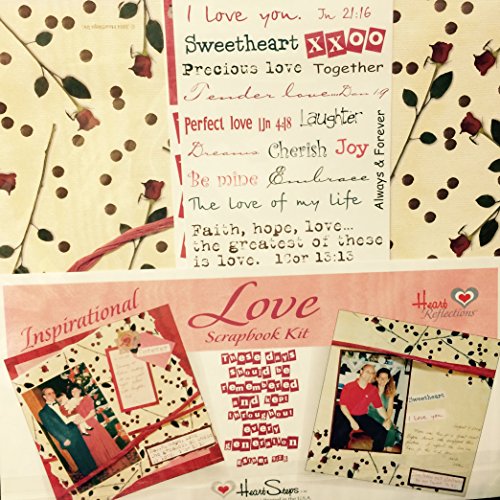 I love you. Jn 21:16
Sweetheart XXOO
Precious love Together
Tender love Dan 19
Perfect love 1Jn 448 Laughter
Dreams Cherish Joy
Be mine Embrace
Always & Forever
The Love of my Life
Faith, hope, love...
the greatest of these
is love. 1Cor 13:13
Inspirational
Love
Scrapbook Kit
Heart
Reflections
These days
should be
remembered
and kept
throughout
every
generation
Sweetheart
I love you
HeartSteps